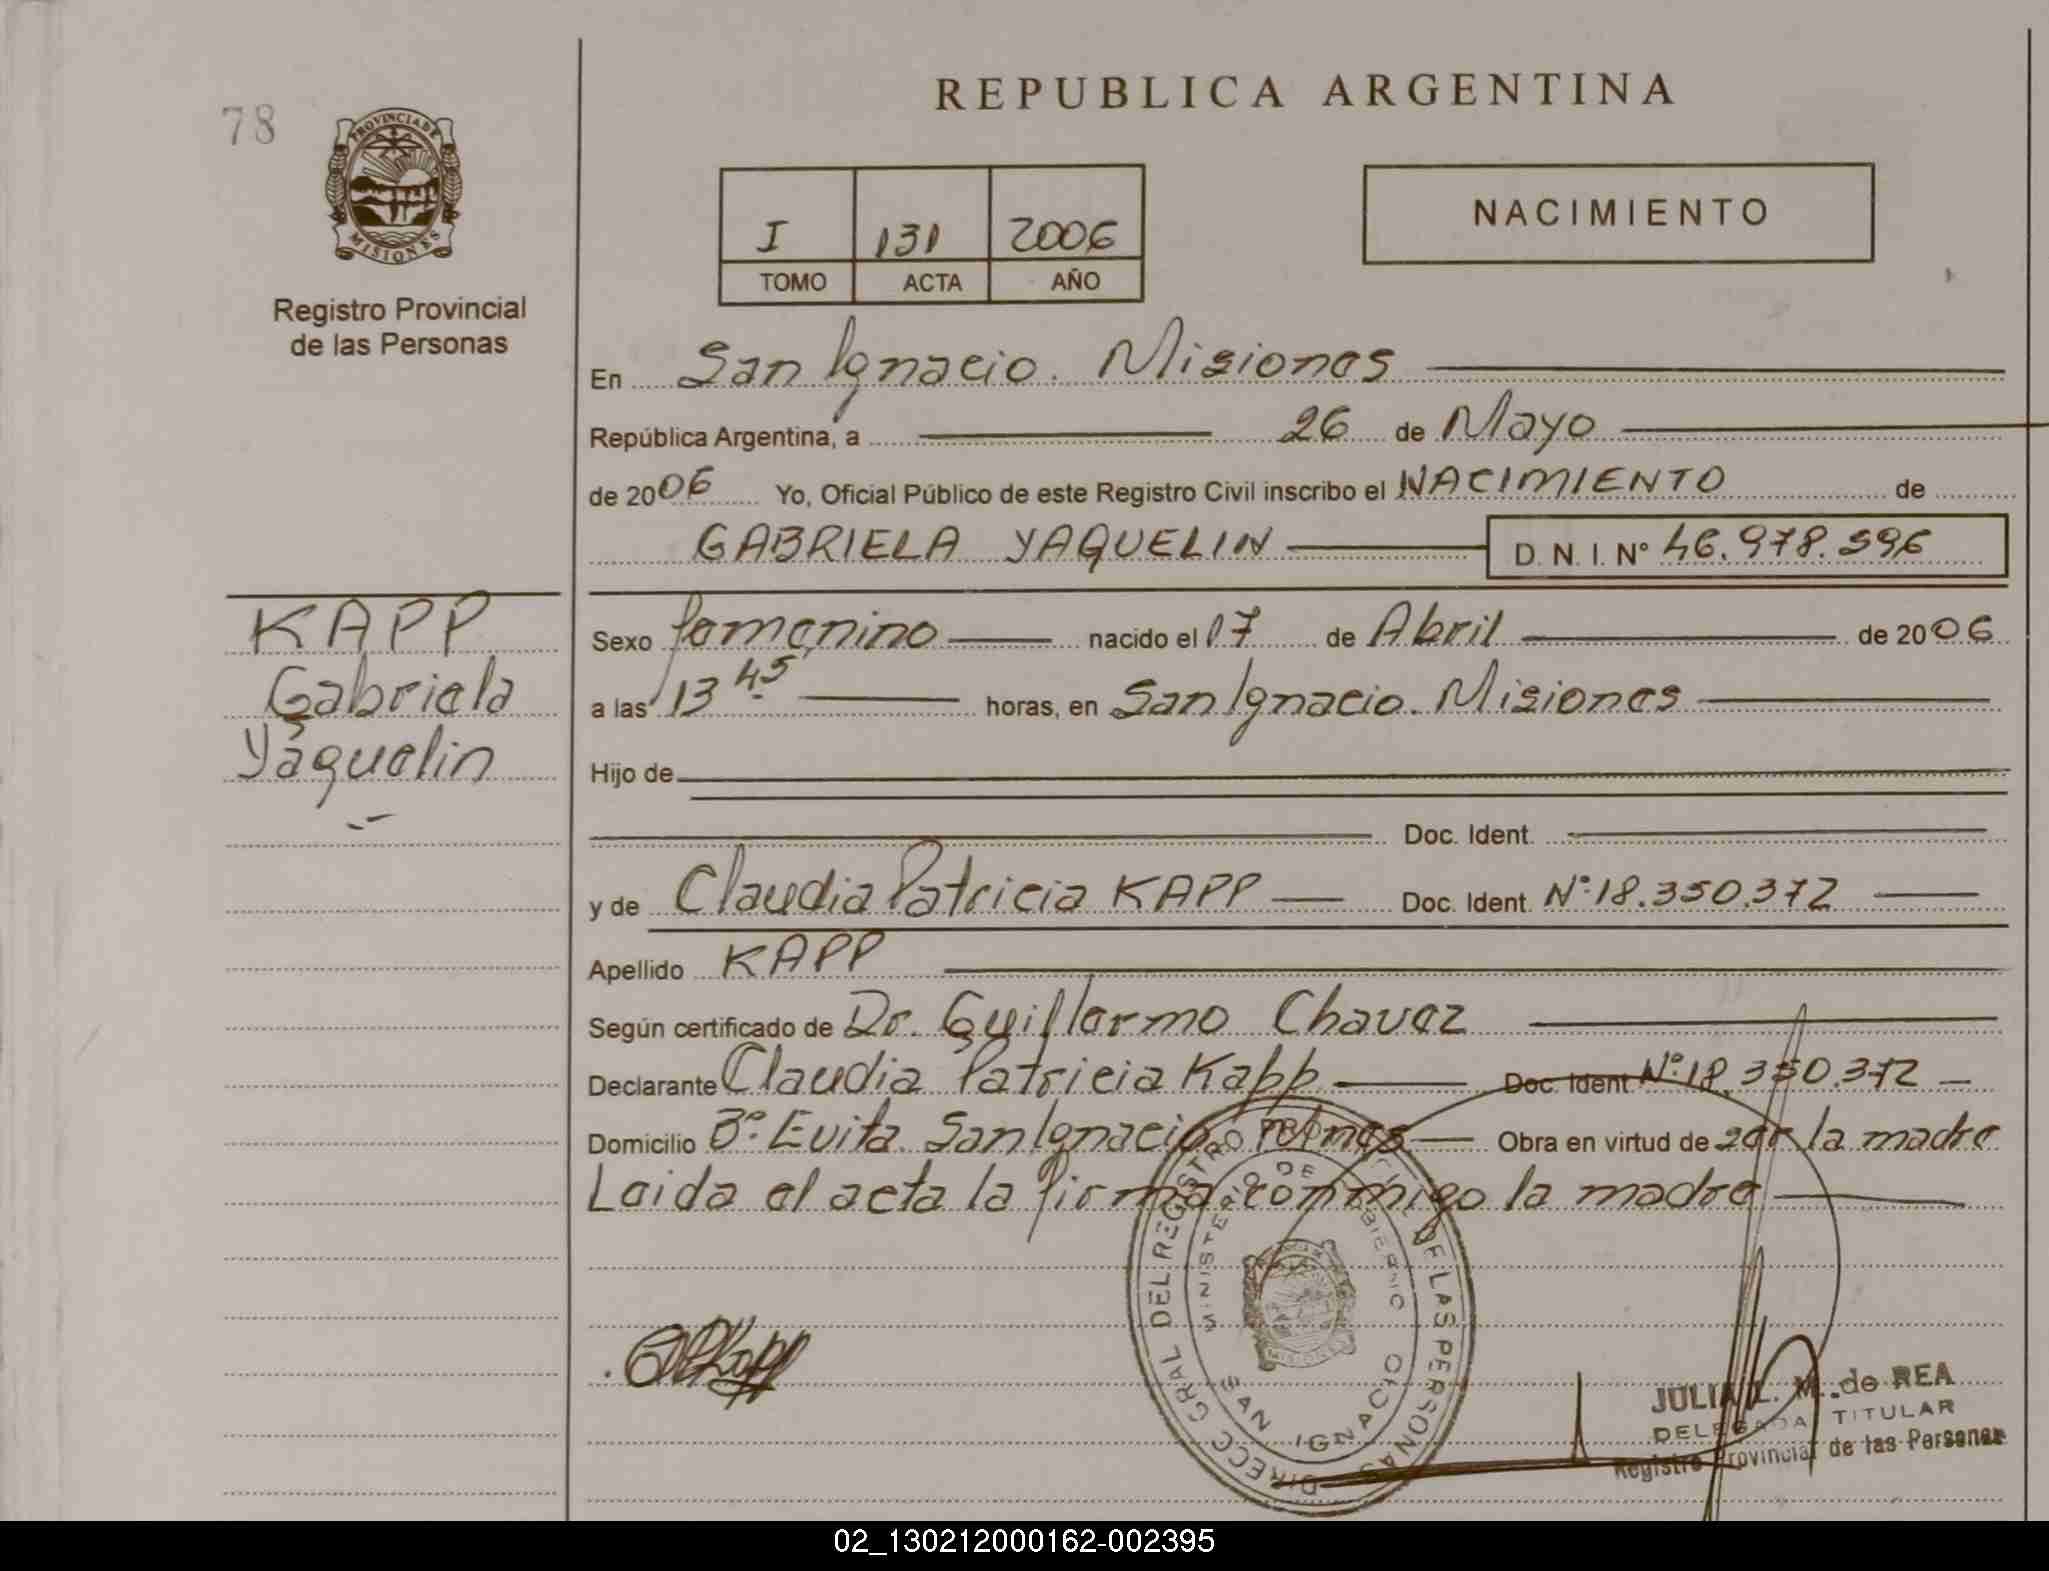 78
PROVINCIA DE
MISIONES
Registro Provincial
de las Personas
REPUBLICA ARGENTINA
I 131 2006
TOMO ACTA AÑO
NACIMIENTO
En San Ignacio. Misiones
República Argentina, a 26 de Mayo
de 2006 Yo, Oficial Público de este Registro Civil inscribo el NACIMIENTO de
GABRIELA YAQUELIN D. N. I. Nº 46.978.596
KAPP
Gabriela
Yaquelin
Sexo femenino nacido el 17 de Abril de 2006
a las 13 45 horas, en San Ignacio. Misiones
Hijo de
Doc. Ident.
y de Claudia Patricia KAPP Doc. Ident. Nº 18.350.372
Apellido KAPP
Según certificado de Dr. Guillermo Chavez
Declarante Claudia Patricia Kapp Doc. Ident. Nº 18.350.372
Domicilio Bº Evita. San Ignacio, Mnes Obra en virtud de ser la madre
Leida el acta la firma conmigo la madre
DIRECC GRAL DEL REGISTRO PROVINCIAL DE LAS PERSONAS
MINISTERIO DE GOBIERNO
SAN IGNACIO
MISIONES
JULIA L. M. de REA
DELEGADA TITULAR
Registro Provincial de las Personas
02_130212000162-002395